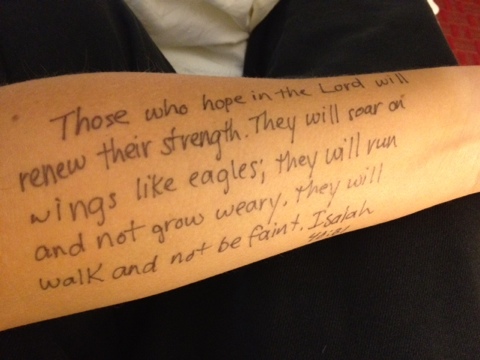 Those who hope in the Lord will
renew their strength. They will soar on
wings like eagles; they will run
and not grow weary. they will
walk and not be faint. Isaiah
40:31